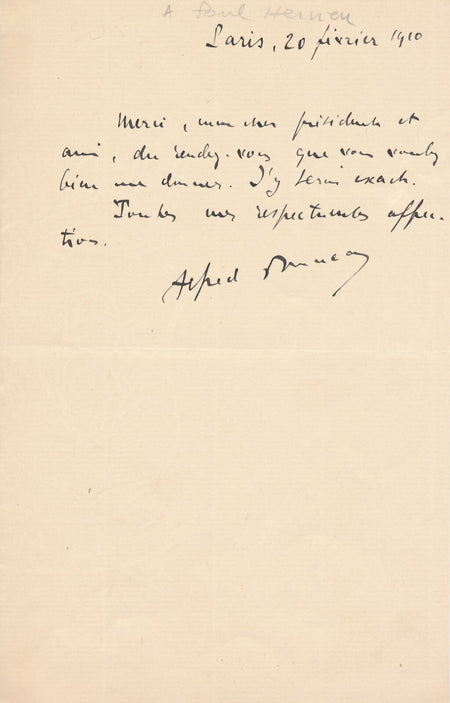 A Paul Hervieu
Paris, 20 février 1910
Merci, mon cher président et
ami, du rendez-vous que vous voulez
bien me donner. J'y serai exact.
Toutes mes respectueuses affec-
tions.
Alfred Bruneau